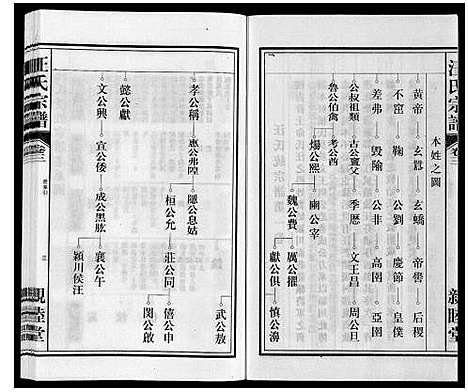 汪氏宗譜
卷三
親睦堂
本姓之圖
黃帝 玄囂 玄蟜 帝嚳 后稷
不窋 鞠 公劉 慶節 皇僕
差弗 毀隃 公非 高圉 亞圉
公叔祖類 古公亶父 季歷 文王昌 周公旦
魯公伯禽 考公酋
煬公熙 幽公宰
魏公㵒 厲公擢
獻公俱 慎公濞
武公敖
懿公戲
孝公稱 惠公弗隍 隱公息姑
桓公允 莊公同 僖公申
閔公啟
文公興 宣公倭 成公黑肱 襄公午
潁川侯汪
汪氏宗譜
卷三
三
親睦堂